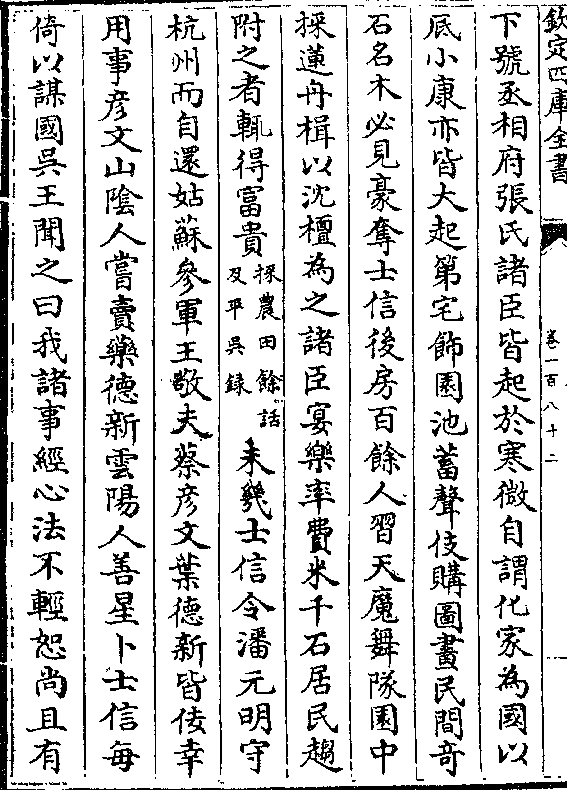 欽定四庫全書
卷一百八十二
下號丞相府張氏諸臣皆起於寒微自謂化家為國以
底小康亦皆大起第宅飾園池蓄聲伎購圖畫民間奇
石名木必見豪奪士信後房百餘人習天魔舞隊園中
採蓮舟楫以沈檀為之諸臣宴樂率費米千石居民趨
附之者輒得富貴採農田餘話及平吳錄未幾士信令潘元明守
杭州而自還姑蘇參軍王敬夫蔡彥文葉德新皆佞幸
用事彥文山陰人嘗賣藥德新雲陽人善星卜士信每
倚以謀國吳王聞之曰我諸事經心法不輕恕尚且有